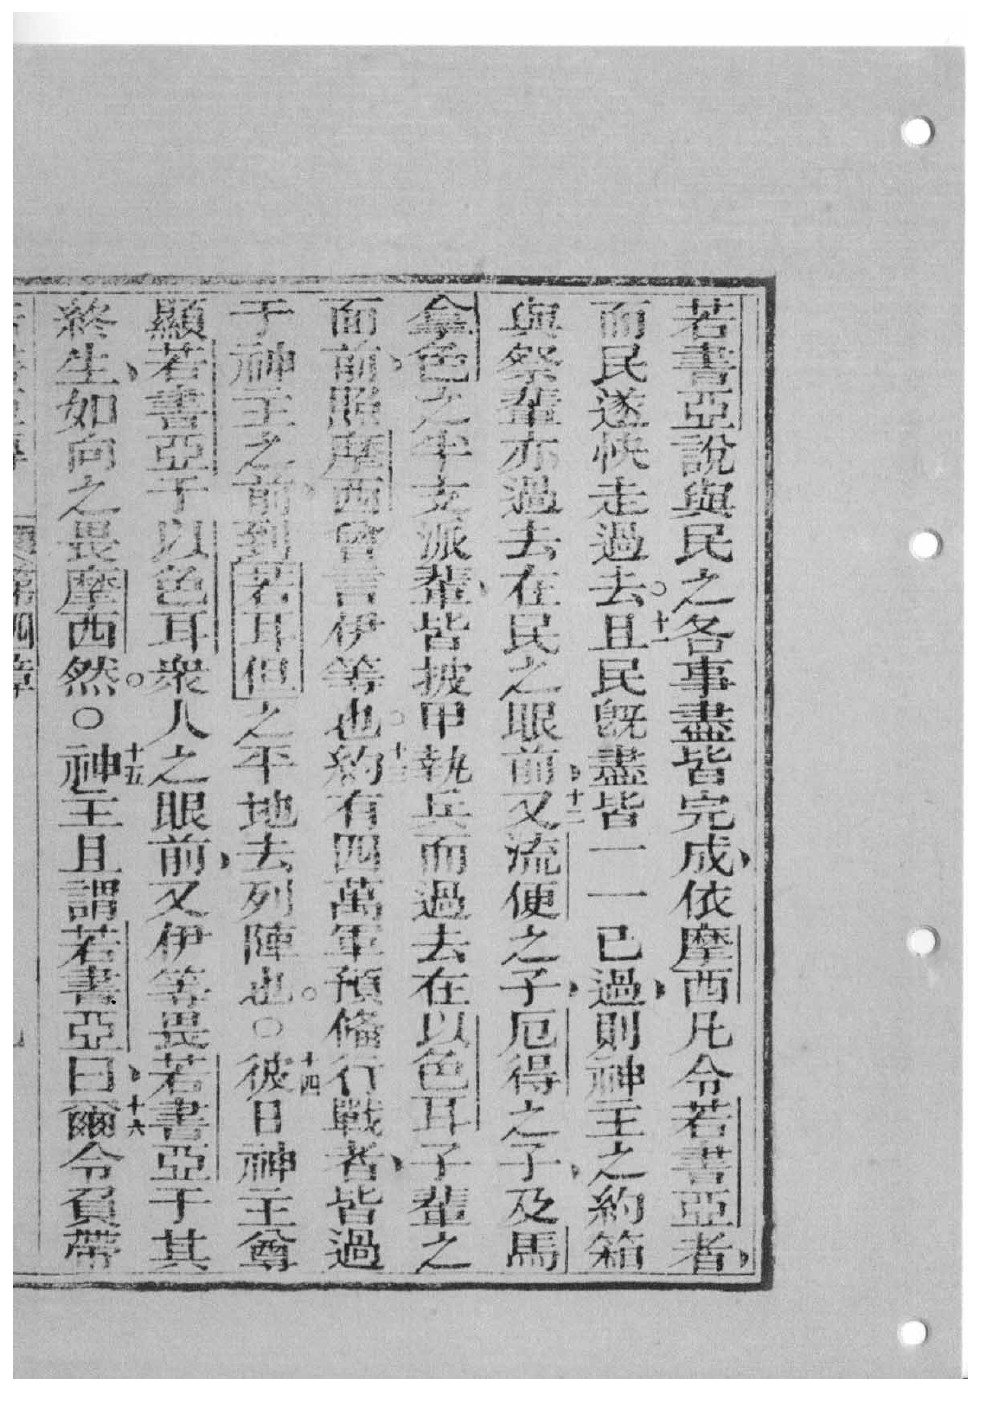 若書亞說與民之各事盡皆完成依摩西凡令若書亞者
而民遂快走過去。十一且民旣盡皆一一已過則神主之約箱
與祭輩亦過去在民之眼前十二又流便之子厄得之子及馬
拿色之半支派輩皆披甲執兵而過去在以色耳子輩之
面前照摩西曾言伊等也。十三約有四萬軍預俻行戰者皆過
于神主之前到若耳但之平地去列陣也。○十四彼日神主尊
顯若書亞于以色耳衆人之眼前又伊等畏若書亞于其
終生如向之畏摩西然。○十五神主且謂若書亞曰十六爾令負帶
第四章